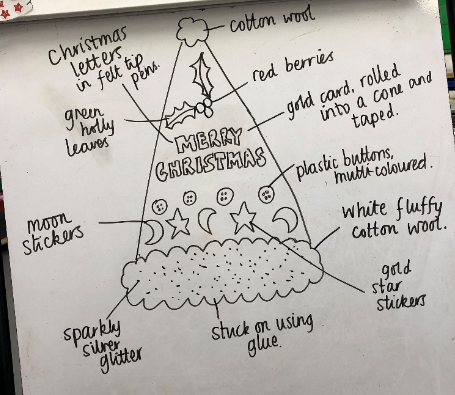 cotton wool
Christmas
letters
in felt tip
pens.
red berries
green
holly
leaves
gold card, rolled
into a cone and
taped.
MERRY
CHRISTMAS
plastic buttons,
multi-coloured.
moon
stickers
white fluffy
cotton wool.
gold
star
stickers
sparkly
silver
glitter
stuck on using
glue.